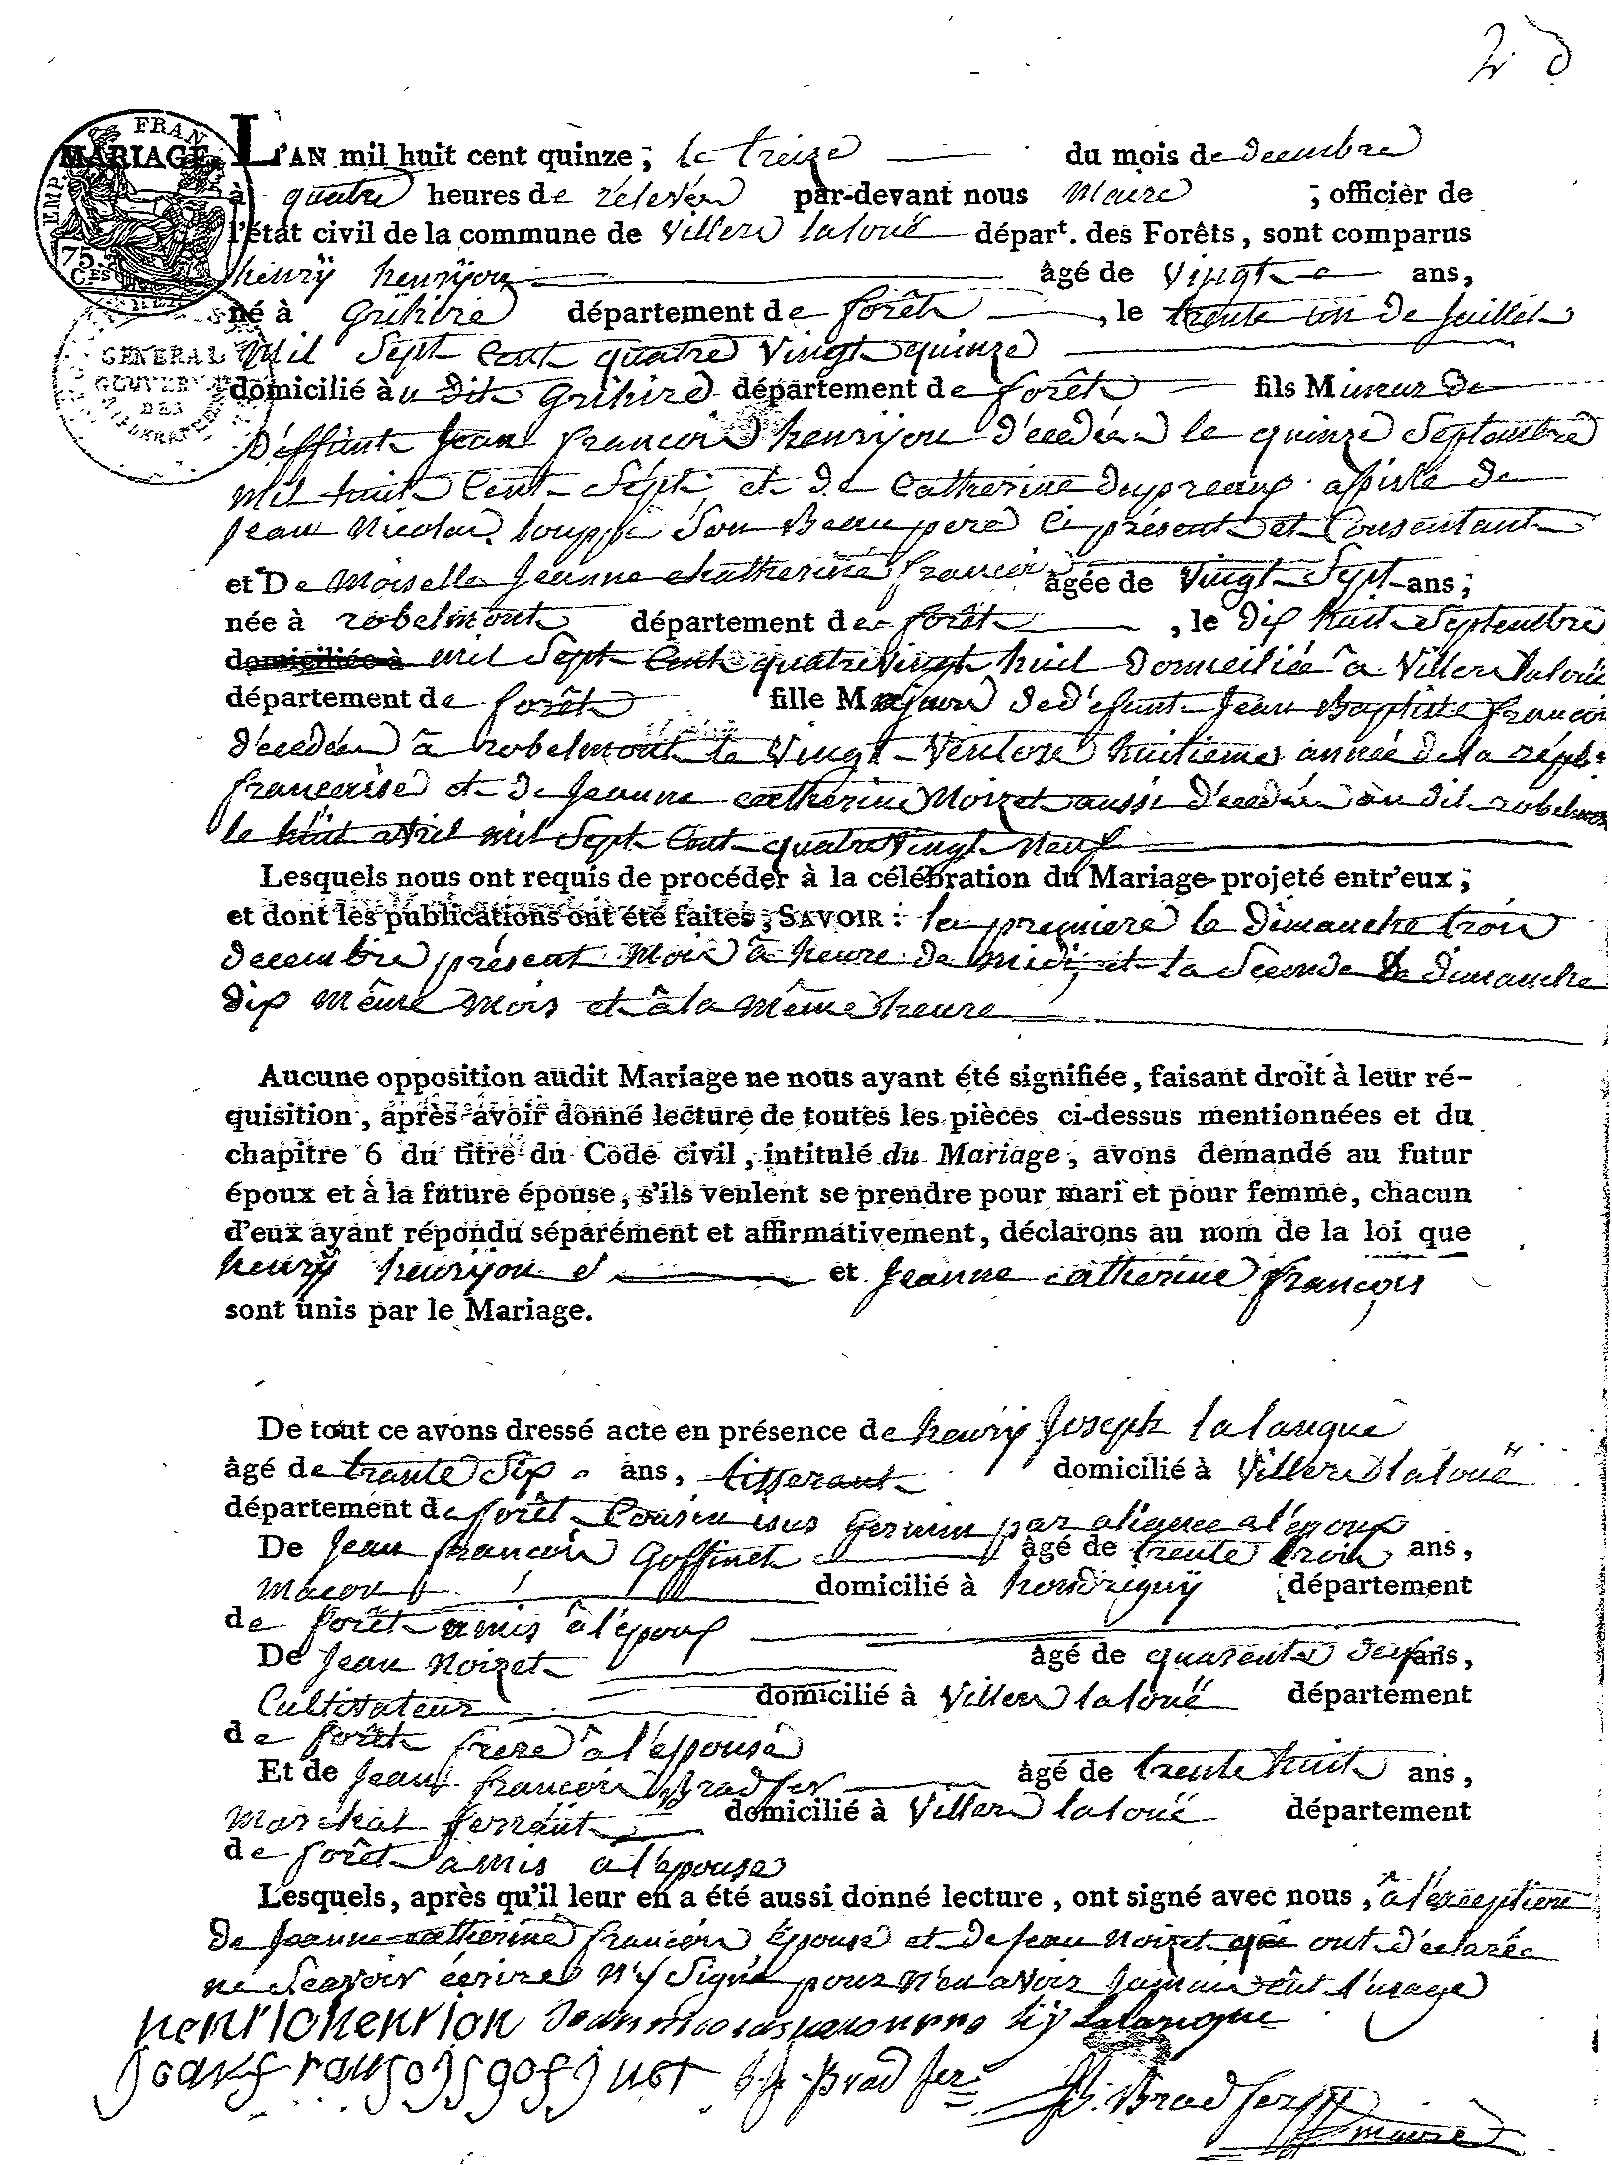 MARIAGE. L'AN mil huit cent quinze ; le treize du mois de decembre
à quatre heures de relevéé par-devant nous Maire ; officier de
l'état civil de la commune de Villers laloué départ. des Forêts, sont comparus
henrÿ henrÿon âgé de Vingt ans,
né à Grihire département de forêt , le trente un de juillet
Mil Sept Cent quatre Vingt quinze
domicilié à u dit Grihire département de forêt fils Mineur de
Déffunt Jean françois henrÿon décedéé le quinze Septembre
mil huit Cent Sépt et de Catherine dupreaux assisté de
jean Nicolas Son Beau pere Ci présent et Consentant
et De Moiselle Jeanne Chatherine françois âgée de Vingt Sept ans ;
née à robelmont département de forêt , le dix huit Septembre
domiciliée à mil Sept Cent quatre vingt huit domiciliée à Villers laloué
département de forêt fille Majeure de défunt Jean Baptiste françois
décedéé à robelmont le Vingt Ventose huitieme année de la répb:
françaisé et de Jeanne catherine Noizet aussi décedéé au dit robelmont
le huit avril mil Sept Cent quatre Vingt Neuf
Lesquels nous ont requis de procéder à la célébration du Mariage projeté entr'eux ;
et dont les publications ont été faites ; SAVOIR : la premiere le dimanche trois
decembre présent Mois à heure de midi et la Seconde le dimanche
dix même Mois et à la même heure
Aucune opposition audit Mariage ne nous ayant été signifiée, faisant droit à leur ré-
quisition, après avoir donné lecture de toutes les pièces ci-dessus mentionnées et du
chapitre 6 du titre du Code civil, intitulé du Mariage, avons demandé au futur
époux et à la future épouse, s'ils veulent se prendre pour mari et pour femme, chacun
d'eux ayant répondu séparément et affirmativement, déclarons au nom de la loi que
henrÿ henrÿon et Jeanne catherine françois
sont unis par le Mariage.
De tout ce avons dressé acte en présence de henrÿ Joseph lalangue
âgé de trante Six ans, tisserant domicilié à Villers laloué
département de forêt Cousin germin par aliance a l'époux
De Jean françois Goffinet âgé de trente trois ans,
Macon domicilié à hondregnÿ département
de forêt amis à l'époux
De Jean Noizet âgé de quarente deux ans,
Cultivateur domicilié à Villers laloué département
de forêt frere à l'épouse
Et de Jean françois Bradfer âgé de trente huit ans,
Marchal ferrant domicilié à Villers laloué département
de forêt amis à l'épouse
Lesquels, après qu'il leur en a été aussi donné lecture, ont signé avec nous, à l'exception
de Jeanne catherine françois Epouse et de Jean Noizet qui ont déclaréé
ne Scavoir écrire N'y Signé pour n'en avoir Jamais eût l'usage
henrichenrion hÿ Lalangue
jeanfransoisgofinet j. f. Bradfer J. Bradfer
maire
EMP. FRAN
75 CES
GENERAL
GOUVERN
DES